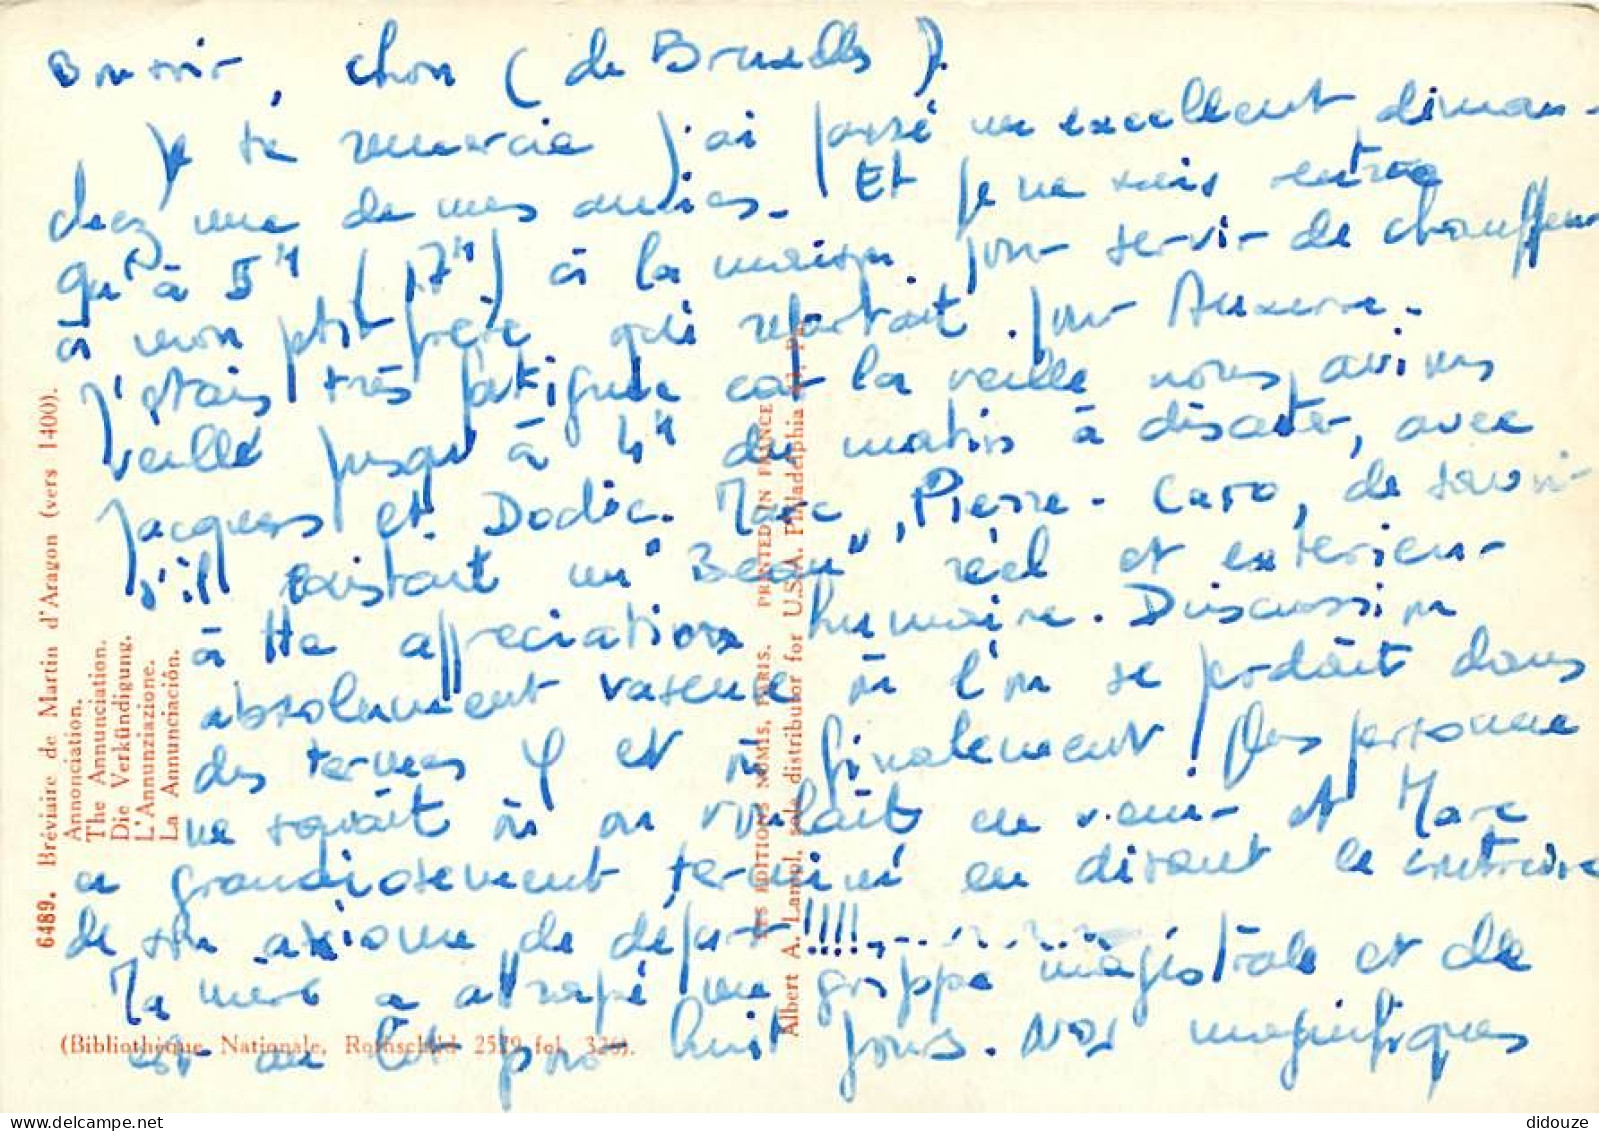 Bonsoir, chou (de Bruxelles).
Je te remercie j'ai passé un excellent diman-
chez une de mes amies. Et je ne suis rentrée
qu'à 5H (17H) à la maison pour servir de chauffeur
à mon ptit frère qui repartait pour Auxerre.
J'étais très fatiguée car la veille nous avions
veillé jusqu'à 4H du matin à discuter, avec
Jacques et Dodie. Marc, Pierre-Caro, de savoir
s'il existait un "Beau" réel et extérieur
à tte appréciation humaine. Discussion
absolument vaseuse où l'on se perdait dans
des termes φ et où finalement! Plus personne
ne savait où on voulait en venir et Marc
a grandiosement terminé en disant le contraire
de son axiome de départ !!!!
Ma mère a attrapé une grippe magistrale et elle
est au lit pour huit jours. Nos magnifiques
6489. Bréviaire de Martin d'Aragon (vers 1400).
Annonciation.
The Annunciation.
Die Verkündigung.
L'Annunziazione.
La Annunciación.
(Bibliothèque Nationale, Rothschild 2529 fol.
LES EDITIONS NOMIS, PARIS. PRINTED IN FRANCE
Albert A. Lampl, sole distributor for U.S.A. Philadelphia
didouze